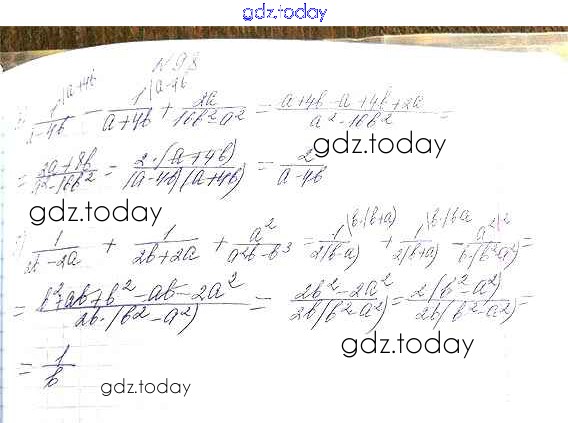 gdz.today
N 98
1/(a-4b) |a+4b - 1/(a+4b) |a-4b + 2a/(16b²-a²) = (a+4b-a+4b+2a)/(a²-16b²) =
gdz.today
= (2a+8b)/(a²-16b²) = 2·(a+4b)/((a-4b)(a+4b)) = 2/(a-4b)
gdz.today
1/(2b-2a) + 1/(2b+2a) + a²/(a²b-b³) = 1/(2(b-a)) |b·(b+a) + 1/(2(b+a)) |b·(b-a) - a²/(b·(b²-a²)) |2 =
= (b²+ab+b²-ab-2a²)/(2b·(b²-a²)) = (2b²-2a²)/(2b(b²-a²)) = 2(b²-a²)/(2b(b²-a²)) =
gdz.today
= 1/b
gdz.today